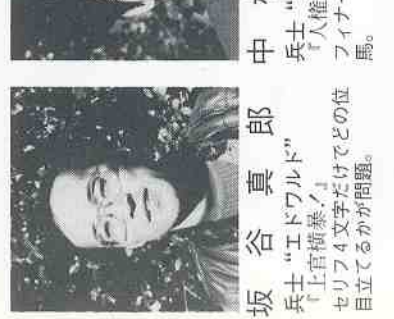 坂谷真郎
兵士“エドワルド”
『上官横暴！』
セリフ4文字だけでどの位
目立てるかが問題。
中
兵士“
『人権
フィナー
馬。